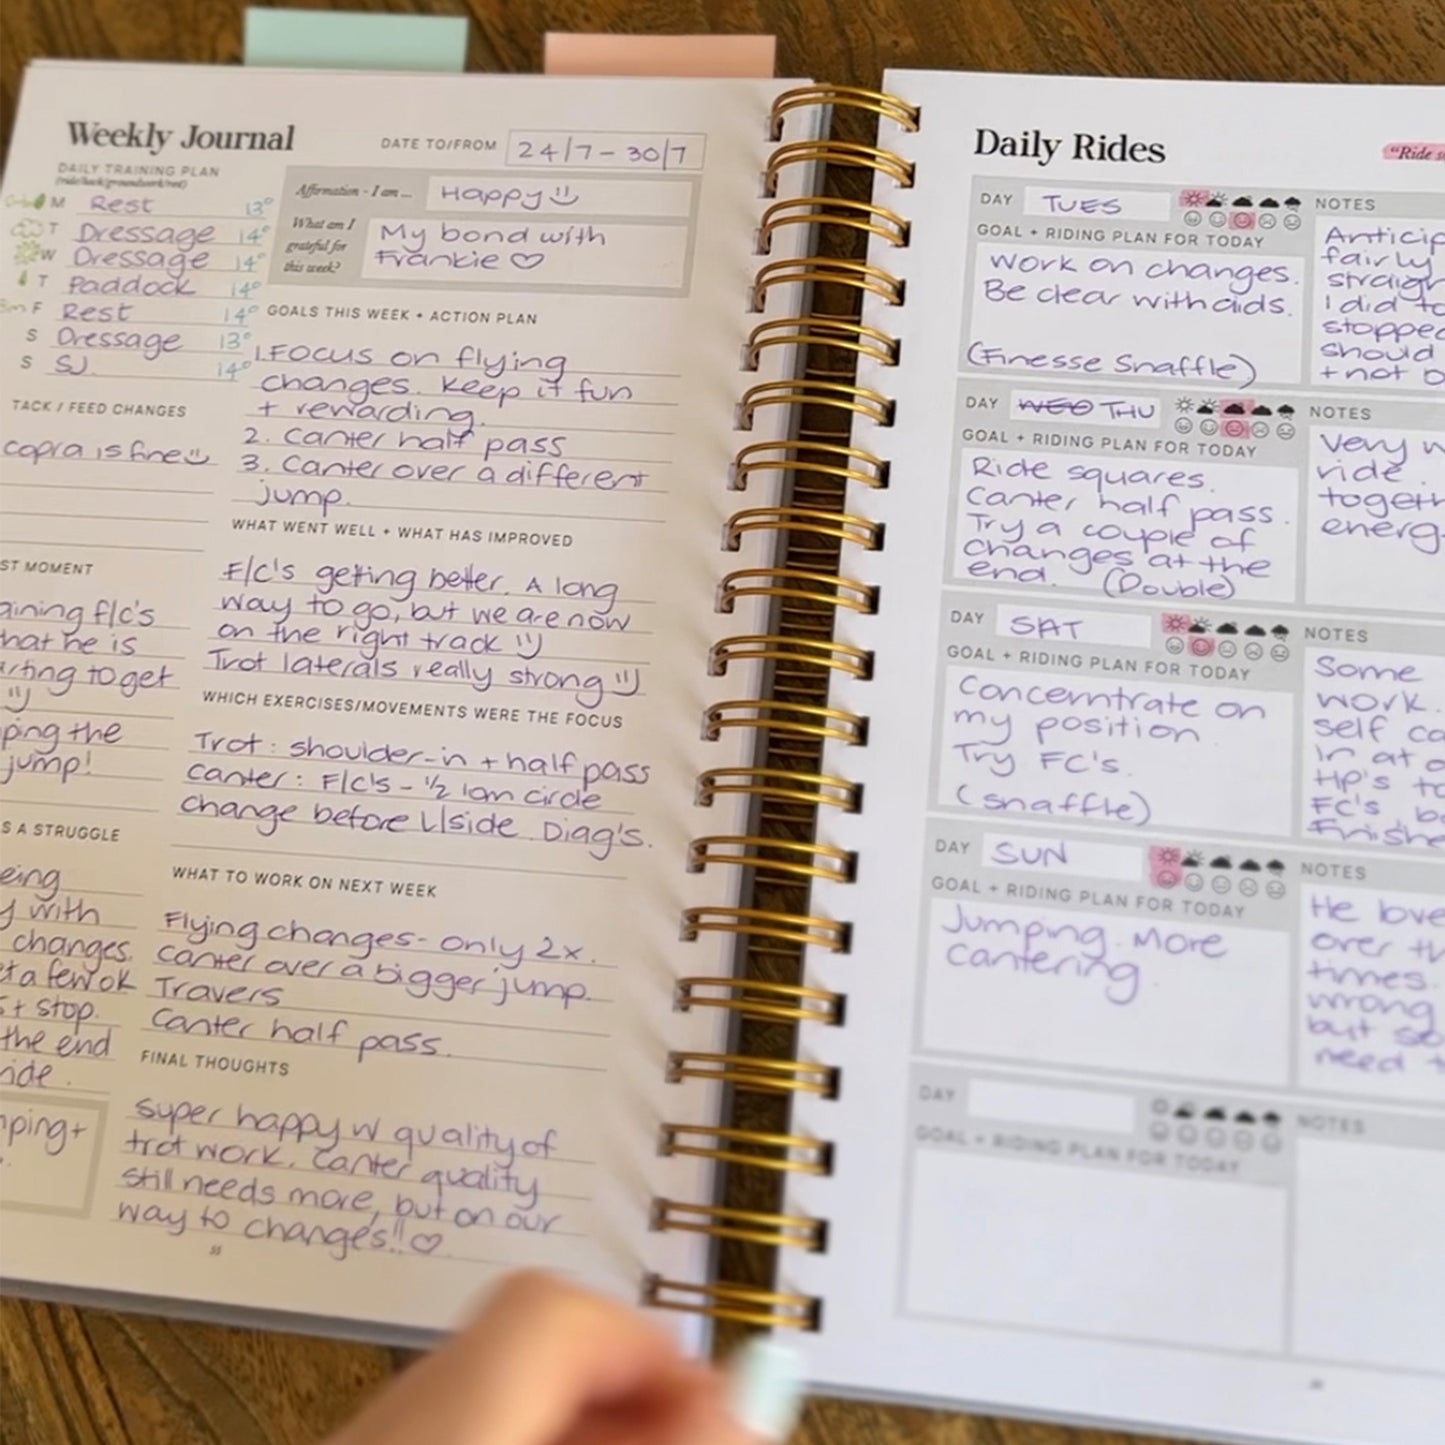 Weekly Journal
DATE TO/FROM 24/7 - 30/7
DAILY TRAINING PLAN
(ride/hack/groundwork/rest)
M Rest 13°
T Dressage 14°
W Dressage 14°
T Paddock 14°
F Rest 14°
S Dressage 13°
S SJ. 14°
Affirmation - I am ... Happy
What am I
grateful for
this week?
My bond with
Frankie ♡
TACK / FEED CHANGES
copra is fine
ST MOMENT
aining f/c's
hat he is
rting to get
ping the
jump!
S A STRUGGLE
eing
y with
changes.
t a few ok
+ stop.
the end
ride.
ping +
GOALS THIS WEEK + ACTION PLAN
1. Focus on flying
changes. Keep it fun
+ rewarding.
2. Canter half pass
3. Canter over a different
jump.
WHAT WENT WELL + WHAT HAS IMPROVED
F/C's getting better. A long
way to go, but we are now
on the right track
Trot laterals really strong
WHICH EXERCISES/MOVEMENTS WERE THE FOCUS
Trot: shoulder-in + half pass
Canter: F/C's - ½ 10m circle
change before L/side. Diag's.
WHAT TO WORK ON NEXT WEEK
Flying changes - only 2x.
Canter over a bigger jump.
Travers
Canter half pass.
FINAL THOUGHTS
Super happy w quality of
trot work. Canter quality
still needs more, but on our
way to changes!! ♡
Daily Rides
"Ride s
DAY TUES
NOTES
GOAL + RIDING PLAN FOR TODAY
Work on changes.
Be clear with aids.
(Finesse Snaffle)
Anticip
fairly
straigh
I did to
stopped
should
+ not
DAY WED THU
NOTES
GOAL + RIDING PLAN FOR TODAY
Ride squares.
Canter half pass.
Try a couple of
changes at the
end. (Double)
Very w
ride.
togeth
energ
DAY SAT
NOTES
GOAL + RIDING PLAN FOR TODAY
Concerntrate on
my position
Try FC's.
(snaffle)
Some
work.
self ca
in at
HP's to
FC's, b
Finishe
DAY SUN
NOTES
GOAL + RIDING PLAN FOR TODAY
Jumping. More
cantering.
He love
over th
times.
wrong
but so
need t
DAY
NOTES
GOAL + RIDING PLAN FOR TODAY